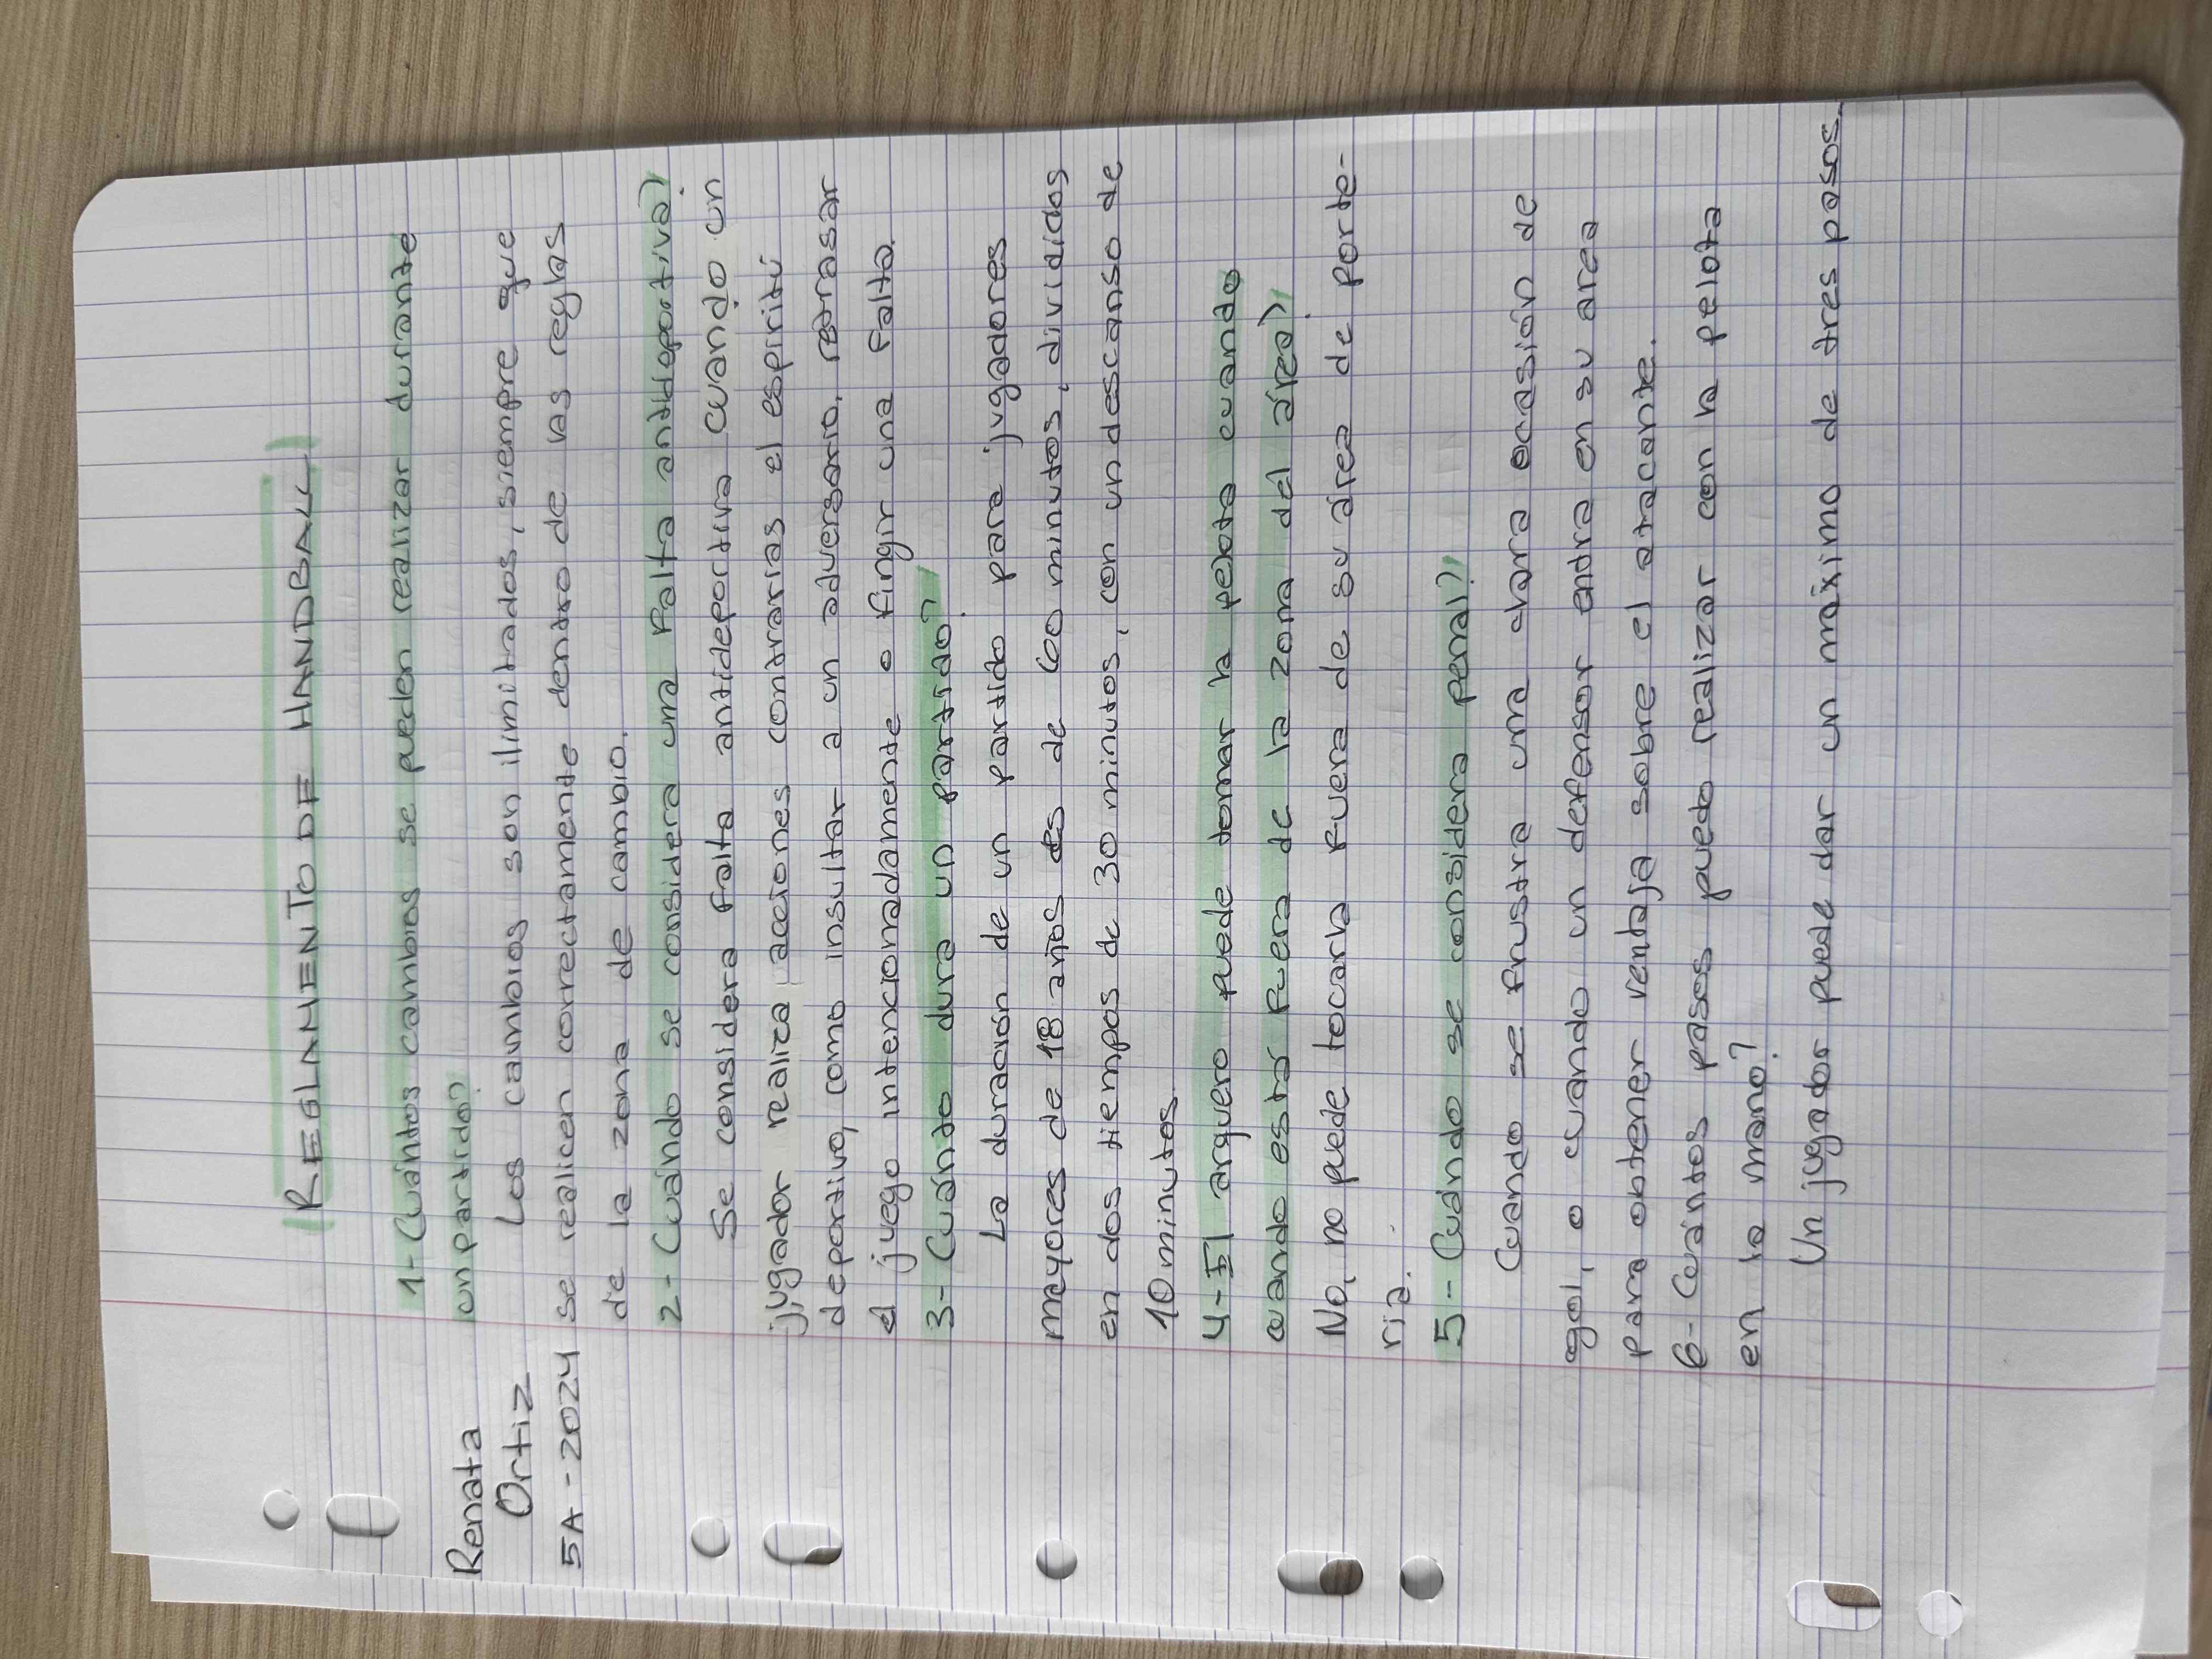 REGLAMENTO DE HANDBALL
1- Cuántos cambios se pueden realizar durante
un partido?
Los cambios son ilimitados, siempre que
se realicen correctamente dentro de las reglas
de la zona de cambio.
2- Cuándo se considera una falta antideportiva?
Se considera falta antideportiva cuando un
jugador realiza acciones contrarias el espiritú
deportivo, como insultar a un adversario, retrasar
el juego intencionadamente o fingir una falta.
3- Cuánto dura un partido?
La duración de un partido para jugadores
mayores de 18 años es de 60 minutos, divididos
en dos tiempos de 30 minutos, con un descanso de
10 minutos.
4- El arquero puede tomar la pelota cuando
cuando estar fuera de la zona del área?
No, no puede tocarla fuera de su área de porte-
ria.
5- Cuándo se considera penal?
Cuando se frustra una clara ocasión de
gol, o cuando un defensor entra en su area
para obtener ventaja sobre el atacante.
6- Cuántos pasos puedo realizar con la pelota
en la mano?
Un jugador puede dar un máximo de tres pasos.
Renata
Ortiz
5A - 2024